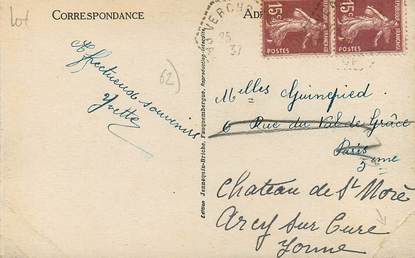 Lot
CORRESPONDANCE
15c
POSTES
15c
POSTES
37
62
Affectueux souvenirs
Yvette
Edition Jennequin-Briche, Fauquembergue. Reproduction interdite
Melles Guinepied
6 Rue du Val de Grâce
Paris
5ème
Chateau de St Moré
Arcy sur Cure
Yonne